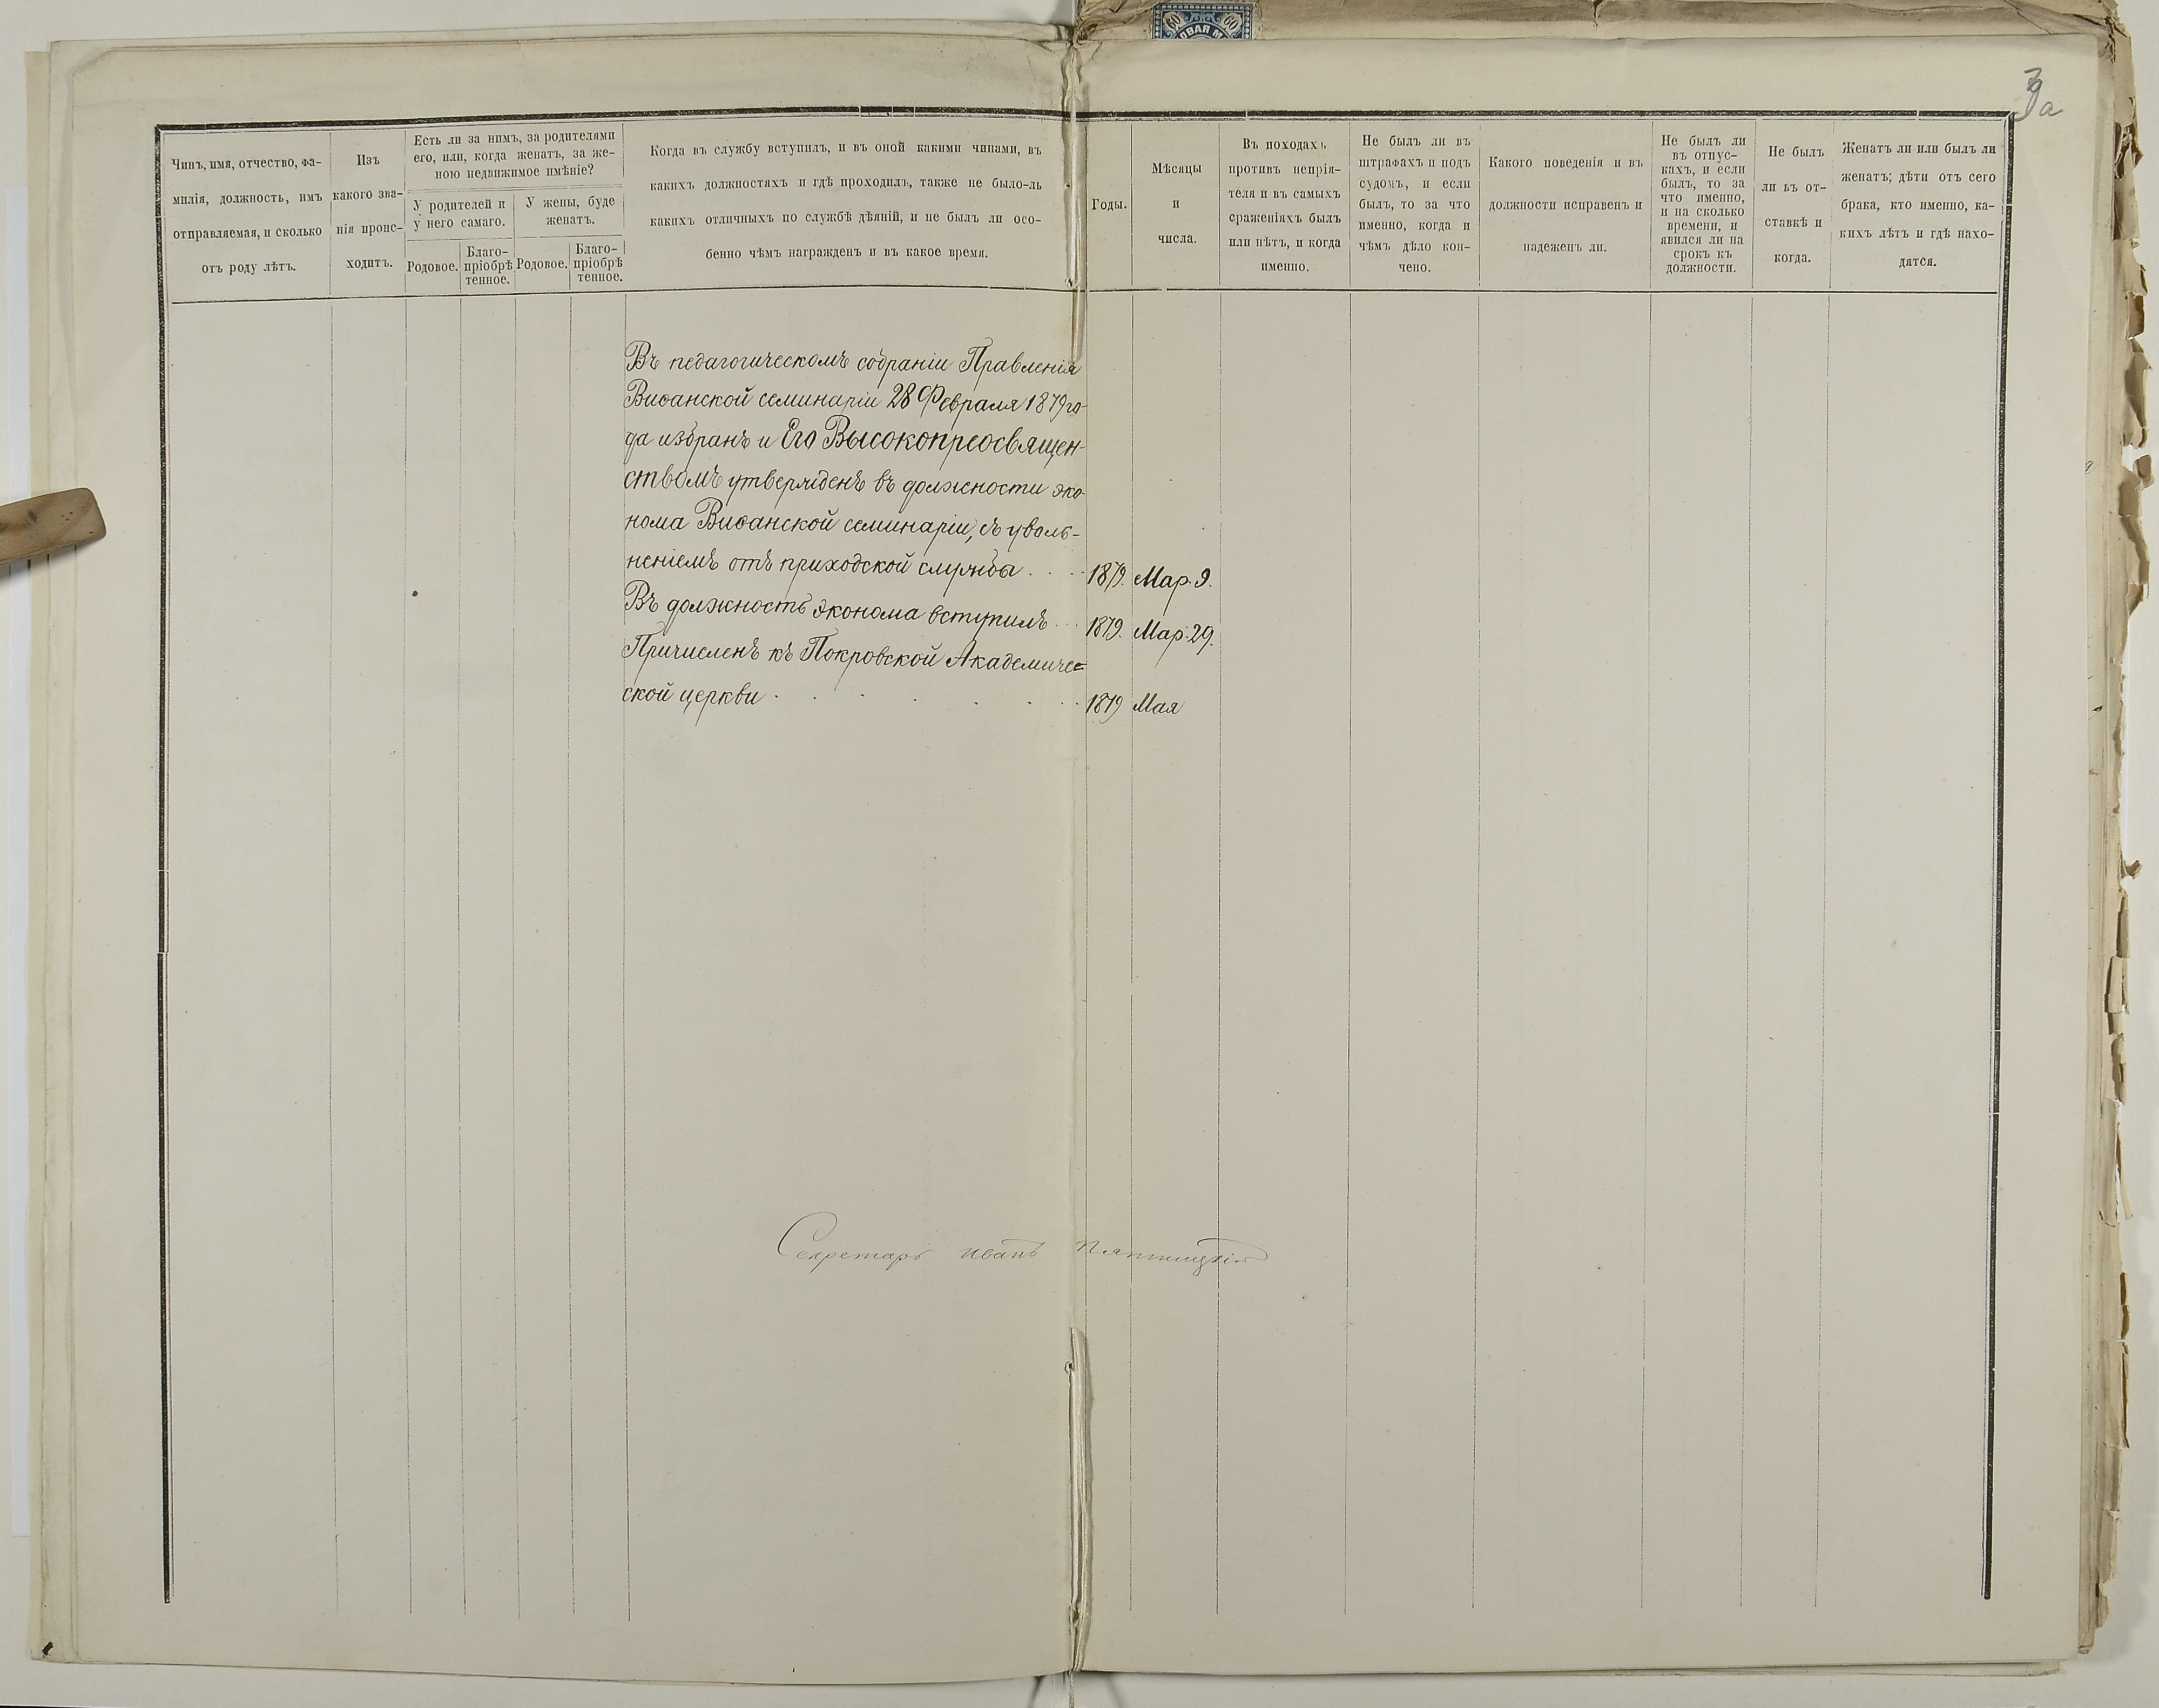 60 60
3а
Чинъ, имя, отчество, фа-
милія, должность, имъ
отправляемая, и сколько
отъ роду лѣтъ.
Изъ
какого зва-
нія проис-
ходитъ.
Есть ли за нимъ, за родителями
его, или, когда женатъ, за же-
ною недвижимое имѣніе?
У родителей и
у него самаго.
У жены, буде
женатъ.
Родовое.
Благо-
пріобрѣ
тенное.
Родовое.
Благо-
пріобрѣ
тенное.
Когда въ службу вступилъ, и въ оной какими чинами, въ
какихъ должностяхъ и гдѣ проходилъ, также не было-ль
какихъ отличныхъ по службѣ дѣяній, и не былъ ли осо-
бенно чѣмъ награжденъ и въ какое время.
Годы.
Мѣсяцы
и
числа.
Въ походахъ
противъ непрія-
теля и въ самыхъ
сраженіяхъ былъ
или нѣтъ, и когда
именно.
Не былъ ли въ
штрафахъ и подъ
судомъ, и если
былъ, то за что
именно, когда и
чѣмъ дѣло кон-
чено.
Какого поведенія и въ
должности исправенъ и
надеженъ ли.
Не былъ ли
въ отпус-
кахъ, и если
былъ, то за
что именно,
и на сколько
времени, и
явился ли на
срокъ къ
должности.
Не былъ
ли въ от-
ставкѣ и
когда.
Женатъ ли или былъ ли
женатъ; дѣти отъ сего
брака, кто именно, ка-
кихъ лѣтъ и гдѣ нахо-
дятся.
Въ педагогическомъ собраніи Правленія
Виѳанской семинаріи 28 Февраля 1879 го-
да избранъ и Его Высокопреосвящен-
ствомъ утвержденъ въ должности эко-
нома Виѳанской семинаріи, съ уволь-
неніемъ отъ приходской службы . . . 1879. Мар. 9.
Въ должность эконома вступилъ . . . 1879. Мар. 29.
Причисленъ къ Покровской Академиче=
ской церкви . . . . . . 1879 Мая
Секретарь Иванъ Пятницкій